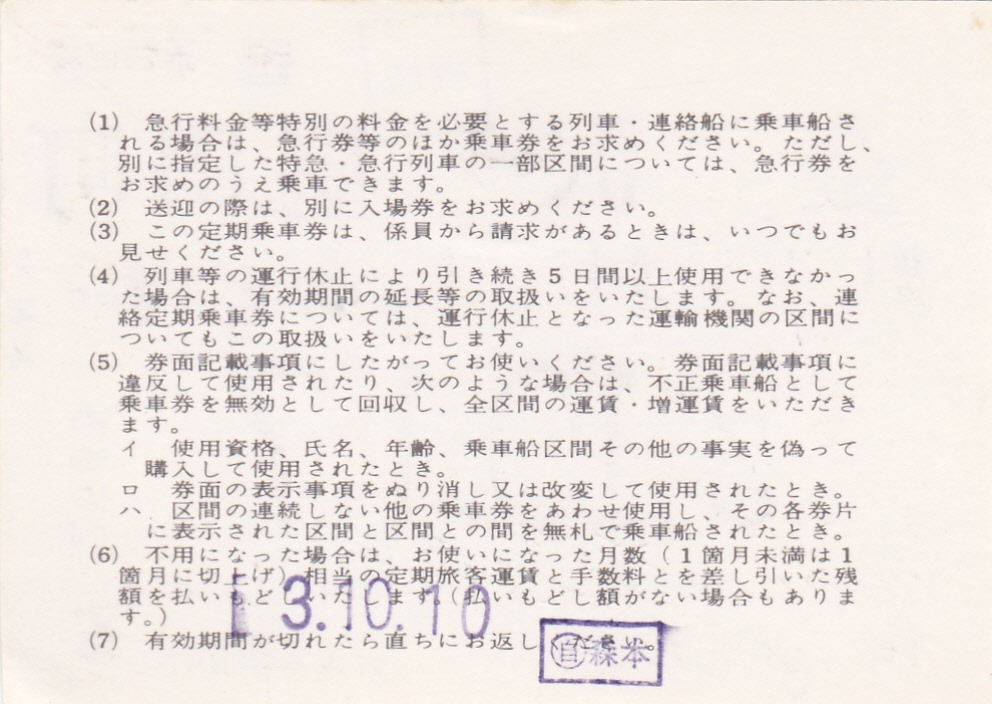 (1) 急行料金等特別の料金を必要とする列車・連絡船に乗車船さ
れる場合は、急行券等のほか乗車券をお求めください。ただし、
別に指定した特急・急行列車の一部区間については、急行券を
お求めのうえ乗車できます。
(2) 送迎の際は、別に入場券をお求めください。
(3) この定期乗車券は、係員から請求があるときは、いつでもお
見せください。
(4) 列車等の運行休止により引き続き5日間以上使用できなかっ
た場合は、有効期間の延長等の取扱いをいたします。なお、連
絡定期乗車券については、運行休止となった運輸機関の区間に
ついてもこの取扱いをいたします。
(5) 券面記載事項にしたがってお使いください。券面記載事項に
違反して使用されたり、次のような場合は、不正乗車船として
乗車券を無効として回収し、全区間の運賃・増運賃をいただき
ます。
イ 使用資格、氏名、年齢、乗車船区間その他の事実を偽って
購入して使用されたとき。
ロ 券面の表示事項をぬり消し又は改変して使用されたとき。
ハ 区間の連続しない他の乗車券をあわせ使用し、その各券片
に表示された区間と区間との間を無札で乗車船されたとき。
(6) 不用になった場合は、お使いになった月数(1箇月未満は1
箇月に切上げ)相当の定期旅客運賃と手数料とを差し引いた残
額を払いもどしいたします。(払いもどし額がない場合もありま
す。)
3.10.10
(7) 有効期間が切れたら直ちにお返しください。
自 森本